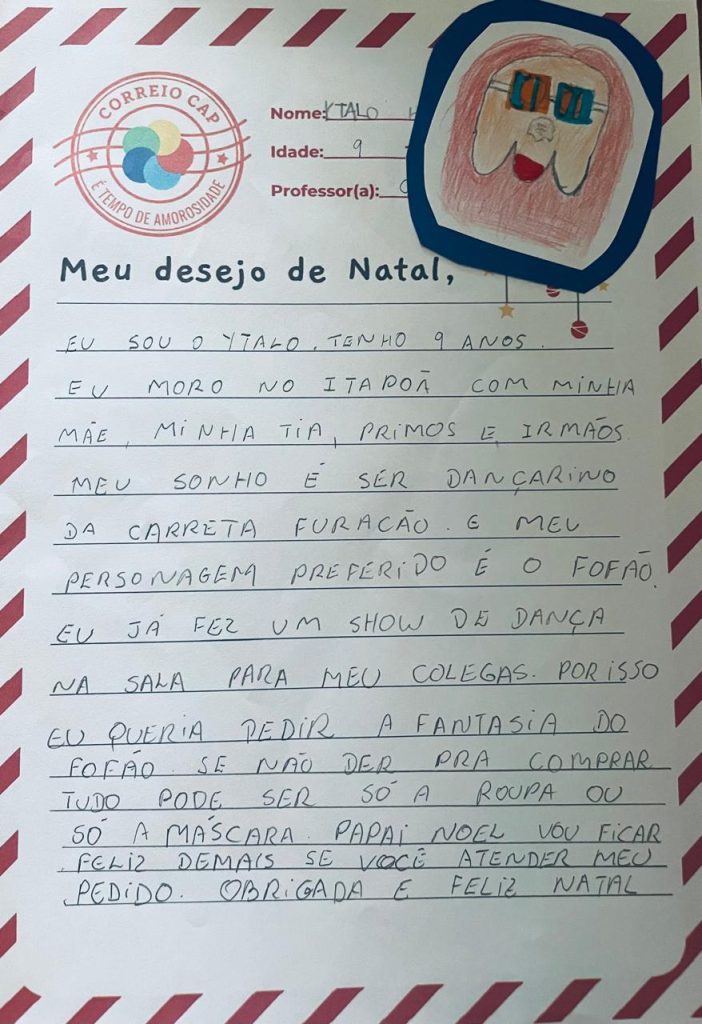 CORREIO CAP
É TEMPO DE AMOROSIDADE
Nome: YTALO
Idade: 9
Professor(a):
Meu desejo de Natal,
EU SOU O YTALO. TENHO 9 ANOS.
EU MORO NO ITAPOÃ COM MINHA
MÃE, MINHA TIA, PRIMOS E IRMÃOS.
MEU SONHO É SER DANÇARINO
DA CARRETA FURACÃO. E MEU
PERSONAGEM PREFERIDO É O FOFÃO.
EU JÁ FEZ UM SHOW DE DANÇA
NA SALA PARA MEU COLEGAS. POR ISSO
EU QUERIA PEDIR A FANTASIA DO
FOFÃO. SE NÃO DER PRA COMPRAR
TUDO PODE SER SÓ A ROUPA OU
SÓ A MÁSCARA. PAPAI NOEL VOU FICAR
FELIZ DEMAIS SE VOCÊ ATENDER MEU
PEDIDO. OBRIGADA E FELIZ NATAL